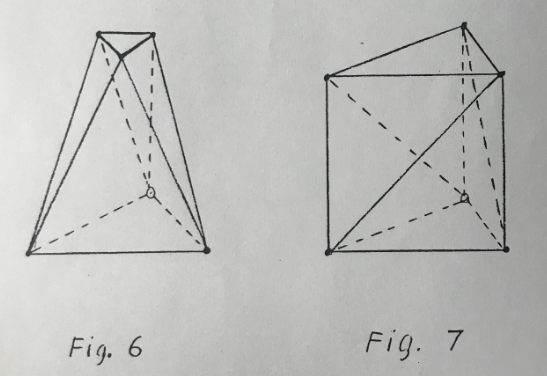 Fig. 6
Fig. 7